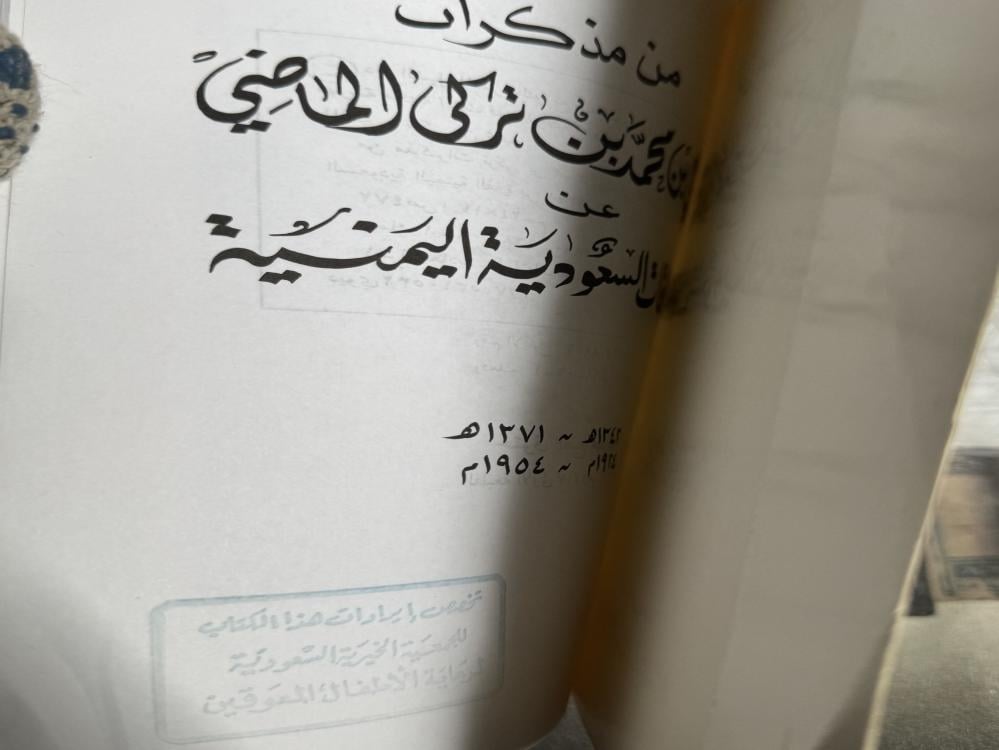 من مذكرات
محمد بن تركي الماضي
عن
السعودية اليمنية
١٣٤٢هـ ~ ١٣٧١هـ
١٩٢٤م ~ ١٩٥٤م
تخصص إيرادات هذا الكتاب
للجمعية الخيرية السعودية
لرعاية الأطفال المعوقين